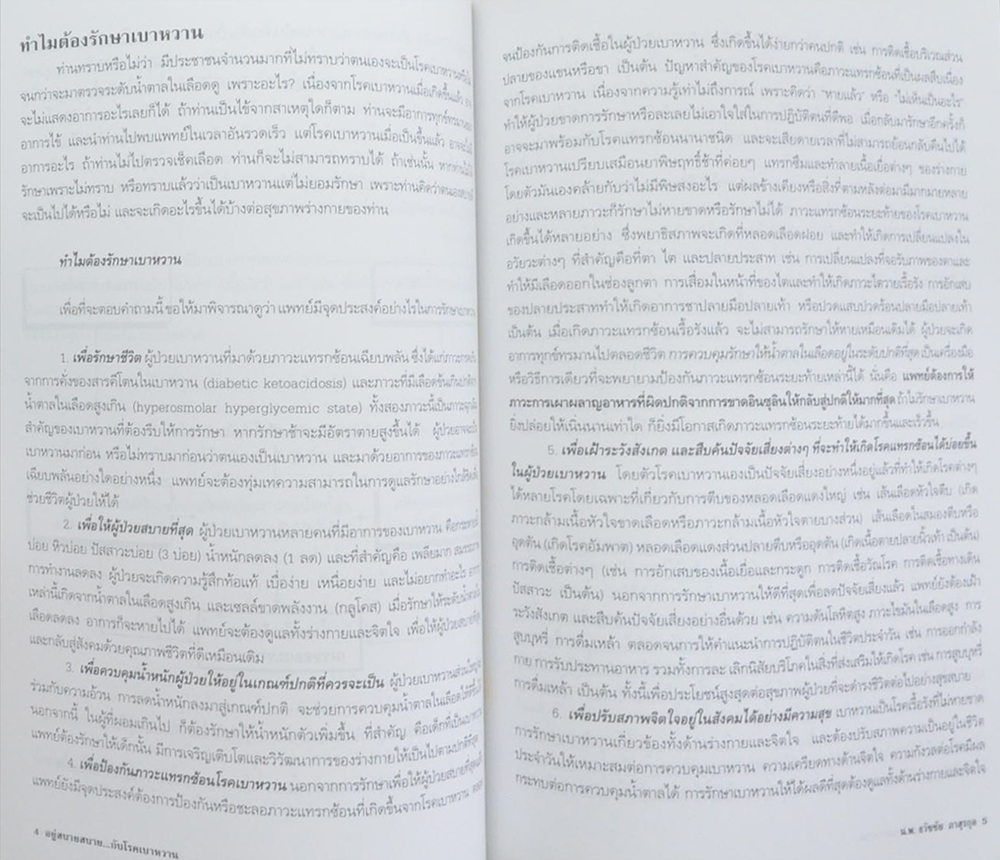 ทำไมต้องรักษาเบาหวาน
ท่านทราบหรือไม่ว่า มีประชาชนจำนวนมากที่ไม่ทราบว่าตนเองจะเป็นโรคเบาหวาน
จนกว่าจะมาตรวจระดับน้ำตาลในเลือดดู เพราะอะไร? เนื่องจากโรคเบาหวานเมื่อเกิดขึ้นแล้ว
จะไม่แสดงอาการอะไรเลยก็ได้ ถ้าท่านเป็นไข้จากสาเหตุใดก็ตาม ท่านจะมีอาการทุกข์ทรมาน
อาการไข้ และนำท่านไปพบแพทย์ในเวลาอันรวดเร็ว แต่โรคเบาหวานเมื่อเป็นขึ้นแล้ว
อาการอะไร ถ้าท่านไม่ไปตรวจเช็คเลือด ท่านก็จะไม่สามารถทราบได้ ถ้าเช่นนั้น
รักษาเพราะไม่ทราบ หรือทราบแล้วว่าเป็นเบาหวานแต่ไม่ยอมรักษา เพราะท่านคิดว่า
จะเป็นไปได้หรือไม่ และจะเกิดอะไรขึ้นได้บ้างต่อสุขภาพร่างกายของท่าน
ทำไมต้องรักษาเบาหวาน
เพื่อที่จะตอบคำถามนี้ ขอให้มาพิจารณาดูว่า แพทย์มีจุดประสงค์อย่างไรในการรักษาเบาหวาน
1. เพื่อรักษาชีวิต ผู้ป่วยเบาหวานที่มาด้วยภาวะแทรกซ้อนเฉียบพลัน ซึ่งได้แก่
จากการคั่งของสารคีโตนในเบาหวาน (diabetic ketoacidosis) และภาวะที่มีเลือดข้นเกินปกติ
น้ำตาลในเลือดสูงเกิน (hyperosmolar hyperglycemic state) ทั้งสองภาวะนี้เป็นภาวะ
สำคัญของเบาหวานที่ต้องรีบให้การรักษา หากรักษาช้าจะมีอัตราตายสูงขึ้นได้
เบาหวานมาก่อน หรือไม่ทราบมาก่อนว่าตนเองเป็นเบาหวาน และมาด้วยอาการของภาวะแทรกซ้อน
เฉียบพลันอย่างใดอย่างหนึ่ง แพทย์จะต้องทุ่มเทความสามารถในการดูแลรักษาอย่างใกล้ชิด
ช่วยชีวิตผู้ป่วยให้ได้
2. เพื่อให้ผู้ป่วยสบายที่สุด ผู้ป่วยเบาหวานหลายคนที่มีอาการของเบาหวาน
บ่อย หิวบ่อย ปัสสาวะบ่อย (3 บ่อย) น้ำหนักลดลง (1 ลด) และที่สำคัญคือ เพลียมาก
การทำงานลดลง ผู้ป่วยจะเกิดความรู้สึกท้อแท้ เบื่อง่าย เหนื่อยง่าย และไม่อยากทำอะไร
เหล่านี้เกิดจากน้ำตาลในเลือดสูงเกิน และเซลล์ขาดพลังงาน (กลูโคส) เมื่อรักษาให้ระดับน้ำตาลใน
เลือดลดลง อาการก็จะหายไปได้ แพทย์จะต้องดูแลทั้งร่างกายและจิตใจ เพื่อให้ผู้ป่วยสบาย
และกลับสู่สังคมด้วยคุณภาพชีวิตที่ดีเหมือนเดิม
3. เพื่อควบคุมน้ำหนักผู้ป่วยให้อยู่ในเกณฑ์ปกติที่ควรจะเป็น ผู้ป่วยเบาหวานส่วนใหญ่
ร่วมกับความอ้วน การลดน้ำหนักลงมาสู่เกณฑ์ปกติ จะช่วยการควบคุมน้ำตาลในเลือดให้ดีขึ้น
นอกจากนี้ ในผู้ที่ผอมเกินไป ก็ต้องรักษาให้น้ำหนักตัวเพิ่มขึ้น ที่สำคัญ คือเด็กที่เป็นเบาหวาน
แพทย์ต้องรักษาให้เด็กนั้น มีการเจริญเติบโตและวิวัฒนาการของร่างกายให้เป็นไปตามปกติที่สุด
4. เพื่อป้องกันภาวะแทรกซ้อนโรคเบาหวาน นอกจากการรักษาเพื่อให้ผู้ป่วยสบายที่สุดแล้ว
แพทย์ยังมีจุดประสงค์ต้องการป้องกันหรือชะลอภาวะแทรกซ้อนที่เกิดขึ้นจากโรคเบาหวาน
4 อยู่สบายสบาย...กับโรคเบาหวาน
จนป้องกันการติดเชื้อในผู้ป่วยเบาหวาน ซึ่งเกิดขึ้นได้ง่ายกว่าคนปกติ เช่น การติดเชื้อบริเวณส่วน
ปลายของแขนหรือขา เป็นต้น ปัญหาสำคัญของโรคเบาหวานคือภาวะแทรกซ้อนที่เป็นผลสืบเนื่อง
จากโรคเบาหวาน เนื่องจากความรู้เท่าไม่ถึงการณ์ เพราะคิดว่า "หายแล้ว" หรือ "ไม่เห็นเป็นอะไร"
ทำให้ผู้ป่วยขาดการรักษาหรือละเลยไม่เอาใจใส่ในการปฏิบัติตนที่ดีพอ เมื่อกลับมารักษาอีกครั้งก็
อาจจะมาพร้อมกับโรคแทรกซ้อนนานาชนิด และจะเสียดายเวลาที่ไม่สามารถย้อนกลับคืนไปได้
โรคเบาหวานเปรียบเสมือนยาพิษฤทธิ์ช้าที่ค่อยๆ แทรกซึมและทำลายเนื้อเยื่อต่างๆ ของร่างกาย
โดยตัวมันเองคล้ายกับว่าไม่มีพิษสงอะไร แต่ผลข้างเคียงหรือสิ่งที่ตามหลังต่อมามีมากมายหลาย
อย่างและหลายภาวะก็รักษาไม่หายขาดหรือรักษาไม่ได้ ภาวะแทรกซ้อนระยะท้ายของโรคเบาหวาน
เกิดขึ้นได้หลายอย่าง ซึ่งพยาธิสภาพจะเกิดที่หลอดเลือดฝอย และทำให้เกิดการเปลี่ยนแปลงใน
อวัยวะต่างๆ ที่สำคัญคือที่ตา ไต และปลายประสาท เช่น การเปลี่ยนแปลงที่จอรับภาพของตาและ
ทำให้มีเลือดออกในช่องลูกตา การเสื่อมในหน้าที่ของไตและทำให้เกิดภาวะไตวายเรื้อรัง การอักเสบ
ของปลายประสาททำให้เกิดอาการชาปลายมือปลายเท้า หรือปวดแสบปวดร้อนปลายมือปลายเท้า
เป็นต้น เมื่อเกิดภาวะแทรกซ้อนเรื้อรังแล้ว จะไม่สามารถรักษาให้หายเหมือนเดิมได้ ผู้ป่วยจะเกิด
อาการทุกข์ทรมานไปตลอดชีวิต การควบคุมรักษาให้น้ำตาลในเลือดอยู่ในระดับปกติที่สุด เป็นเครื่องมือ
หรือวิธีการเดียวที่จะพยายามป้องกันภาวะแทรกซ้อนระยะท้ายเหล่านี้ได้ นั่นคือ แพทย์ต้องการให้
ภาวะการเผาผลาญอาหารที่ผิดปกติจากการขาดอินซูลินให้กลับสู่ปกติให้มากที่สุด ถ้าไม่รักษาเบาหวาน
ยิ่งปล่อยให้เนิ่นนานเท่าใด ก็ยิ่งมีโอกาสเกิดภาวะแทรกซ้อนระยะท้ายได้มากขึ้นและเร็วขึ้น
5. เพื่อเฝ้าระวังสังเกต และสืบค้นปัจจัยเสี่ยงต่างๆ ที่จะทำให้เกิดโรคแทรกซ้อนได้บ่อยขึ้น
ในผู้ป่วยเบาหวาน โดยตัวโรคเบาหวานเองเป็นปัจจัยเสี่ยงอย่างหนึ่งอยู่แล้วที่ทำให้เกิดโรคต่างๆ
ได้หลายโรคโดยเฉพาะที่เกี่ยวกับการตีบของหลอดเลือดแดงใหญ่ เช่น เส้นเลือดหัวใจตีบ (เกิด
ภาวะกล้ามเนื้อหัวใจขาดเลือดหรือภาวะกล้ามเนื้อหัวใจตายบางส่วน) เส้นเลือดในสมองตีบหรือ
อุดตัน (เกิดโรคอัมพาต) หลอดเลือดแดงส่วนปลายตีบหรืออุดตัน (เกิดเนื้อตายปลายนิ้วเท้า เป็นต้น)
การติดเชื้อต่างๆ (เช่น การอักเสบของเนื้อเยื่อและกระดูก การติดเชื้อวัณโรค การติดเชื้อทางเดิน
ปัสสาวะ เป็นต้น) นอกจากการรักษาเบาหวานให้ดีที่สุดเพื่อลดปัจจัยเสี่ยงแล้ว แพทย์ยังต้องเฝ้า
ระวังสังเกต และสืบค้นปัจจัยเสี่ยงอย่างอื่นด้วย เช่น ความดันโลหิตสูง ภาวะไขมันในเลือดสูง การ
สูบบุหรี่ การดื่มเหล้า ตลอดจนการให้คำแนะนำการปฏิบัติตนในชีวิตประจำวัน เช่น การออกกำลัง
กาย การรับประทานอาหาร รวมทั้งการละ เลิกนิสัยบริโภคในสิ่งที่ส่งเสริมให้เกิดโรค เช่น การสูบบุหรี่
การดื่มเหล้า เป็นต้น ทั้งนี้เพื่อประโยชน์สูงสุดต่อสุขภาพผู้ป่วยที่จะดำรงชีวิตต่อไปอย่างสุขสบาย
6. เพื่อปรับสภาพจิตใจอยู่ในสังคมได้อย่างมีความสุข เบาหวานเป็นโรคเรื้อรังที่ไม่หายขาด
การรักษาเบาหวานเกี่ยวข้องทั้งด้านร่างกายและจิตใจ และต้องปรับสภาพความเป็นอยู่ในชีวิต
ประจำวันให้เหมาะสมต่อการควบคุมเบาหวาน ความเครียดทางด้านจิตใจ ความกังวลต่อโรคมีผล
กระทบต่อการควบคุมน้ำตาลได้ การรักษาเบาหวานให้ได้ผลดีที่สุดต้องดูแลทั้งด้านร่างกายและจิตใจ
น.พ. ธวัชชัย ภาสุรกุล 5